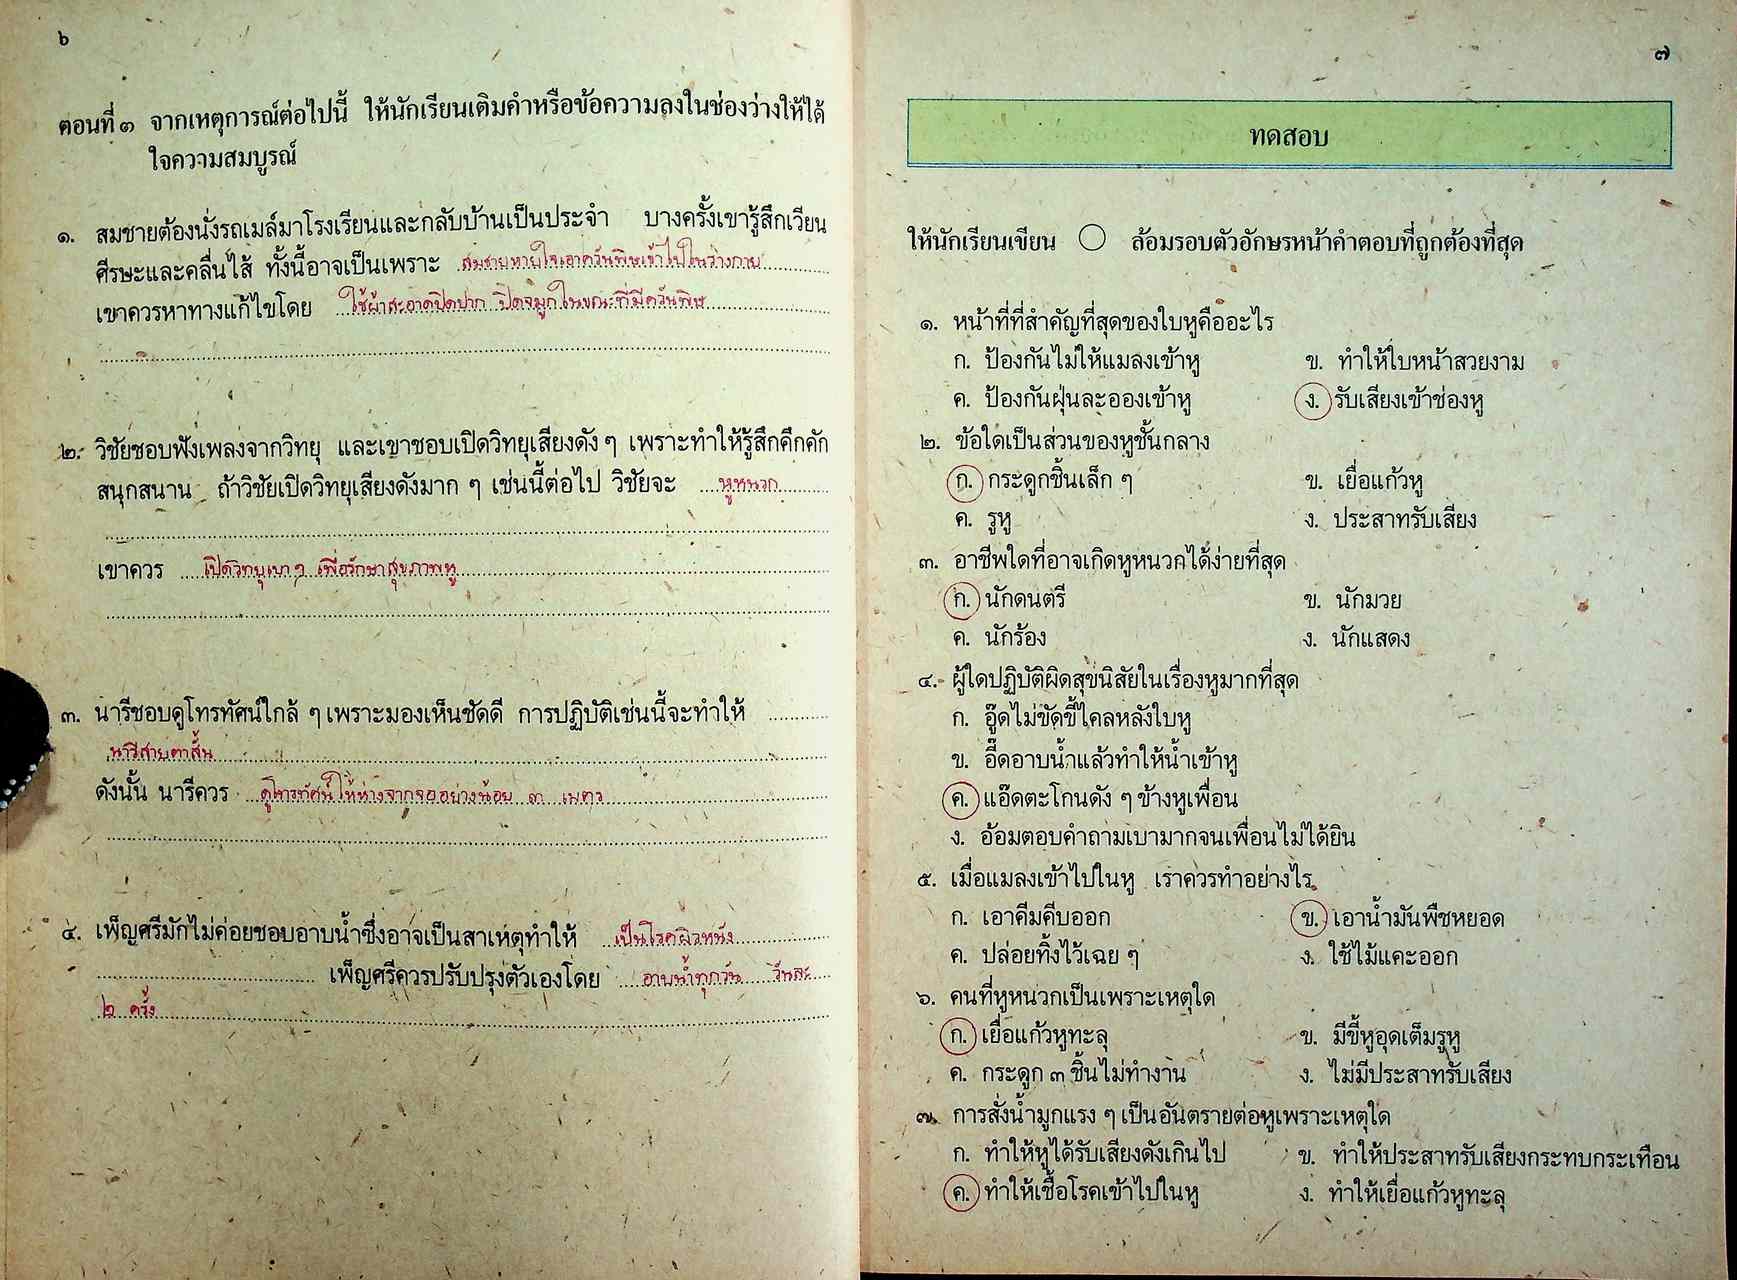 ๖
ตอนที่ ๓ จากเหตุการณ์ต่อไปนี้ ให้นักเรียนเติมคำหรือข้อความลงในช่องว่างให้ได้
ใจความสมบูรณ์
๑. สมชายต้องนั่งรถเมล์มาโรงเรียนและกลับบ้านเป็นประจำ บางครั้งเขารู้สึกเวียน
ศีรษะและคลื่นไส้ ทั้งนี้อาจเป็นเพราะ สมชายหายใจเอาควันพิษเข้าไปในร่างกาย
เขาควรหาทางแก้ไขโดย ใช้ผ้าสะอาดปิดปาก ปิดจมูกในขณะที่มีควันพิษ
๒. วิชัยชอบฟังเพลงจากวิทยุ และเขาชอบเปิดวิทยุเสียงดัง ๆ เพราะทำให้รู้สึกคึกคัก
สนุกสนาน ถ้าวิชัยเปิดวิทยุเสียงดังมาก ๆ เช่นนี้ต่อไป วิชัยจะ หูหนวก
เขาควร เปิดวิทยุเบา ๆ เพื่อรักษาสุขภาพหู
๓. นารีชอบดูโทรทัศน์ใกล้ ๆ เพราะมองเห็นชัดดี การปฏิบัติเช่นนี้จะทำให้
นารีสายตาสั้น
ดังนั้น นารีควร ดูโทรทัศน์ให้ห่างจากจออย่างน้อย ๓ เมตร
๔. เพ็ญศรีมักไม่ค่อยชอบอาบน้ำซึ่งอาจเป็นสาเหตุทำให้ เป็นโรคผิวหนัง
เพ็ญศรีควรปรับปรุงตัวเองโดย อาบน้ำทุกวัน วันละ
๒ ครั้ง
๗
ทดสอบ
ให้นักเรียนเขียน ◯ ล้อมรอบตัวอักษรหน้าคำตอบที่ถูกต้องที่สุด
๑. หน้าที่ที่สำคัญที่สุดของใบหูคืออะไร
ก. ป้องกันไม่ให้แมลงเข้าหู ข. ทำให้ใบหน้าสวยงาม
ค. ป้องกันฝุ่นละอองเข้าหู ง. รับเสียงเข้าช่องหู
๒. ข้อใดเป็นส่วนของหูชั้นกลาง
ก. กระดูกชิ้นเล็ก ๆ ข. เยื่อแก้วหู
ค. รูหู ง. ประสาทรับเสียง
๓. อาชีพใดที่อาจเกิดหูหนวกได้ง่ายที่สุด
ก. นักดนตรี ข. นักมวย
ค. นักร้อง ง. นักแสดง
๔. ผู้ใดปฏิบัติผิดสุขนิสัยในเรื่องหูมากที่สุด
ก. อู๊ดไม่ขัดขี้ไคลหลังใบหู
ข. อี๊ดอาบน้ำแล้วทำให้น้ำเข้าหู
ค. แอ๊ดตะโกนดัง ๆ ข้างหูเพื่อน
ง. อ้อมตอบคำถามเบามากจนเพื่อนไม่ได้ยิน
๕. เมื่อแมลงเข้าไปในหู เราควรทำอย่างไร
ก. เอาคีมคีบออก ข. เอาน้ำมันพืชหยอด
ค. ปล่อยทิ้งไว้เฉย ๆ ง. ใช้ไม้แคะออก
๖. คนที่หูหนวกเป็นเพราะเหตุใด
ก. เยื่อแก้วหูทะลุ ข. มีขี้หูอุดเต็มรูหู
ค. กระดูก ๓ ชิ้นไม่ทำงาน ง. ไม่มีประสาทรับเสียง
๗. การสั่งน้ำมูกแรง ๆ เป็นอันตรายต่อหูเพราะเหตุใด
ก. ทำให้หูได้รับเสียงดังเกินไป ข. ทำให้ประสาทรับเสียงกระทบกระเทือน
ค. ทำให้เชื้อโรคเข้าไปในหู ง. ทำให้เยื่อแก้วหูทะลุ